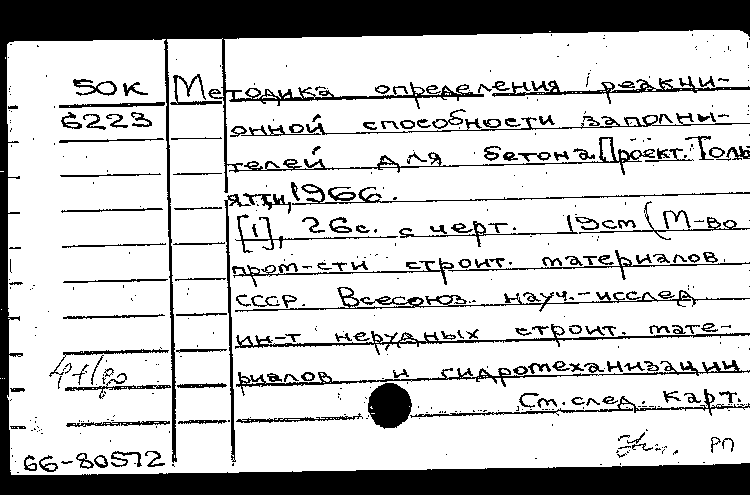 50к Методика определения реакци-
6223 онной способности заполни-
телей для бетона [Проект. Толь
ятти, 1966.
[1], 26с. с черт. 19см (М-во
пром-сти строит. материалов
СССР. Всесоюз. науч.-исслед
ин-т нерудных строит. мате-
риалов и гидромеханизации
См. след. карт.
66-80572 РП